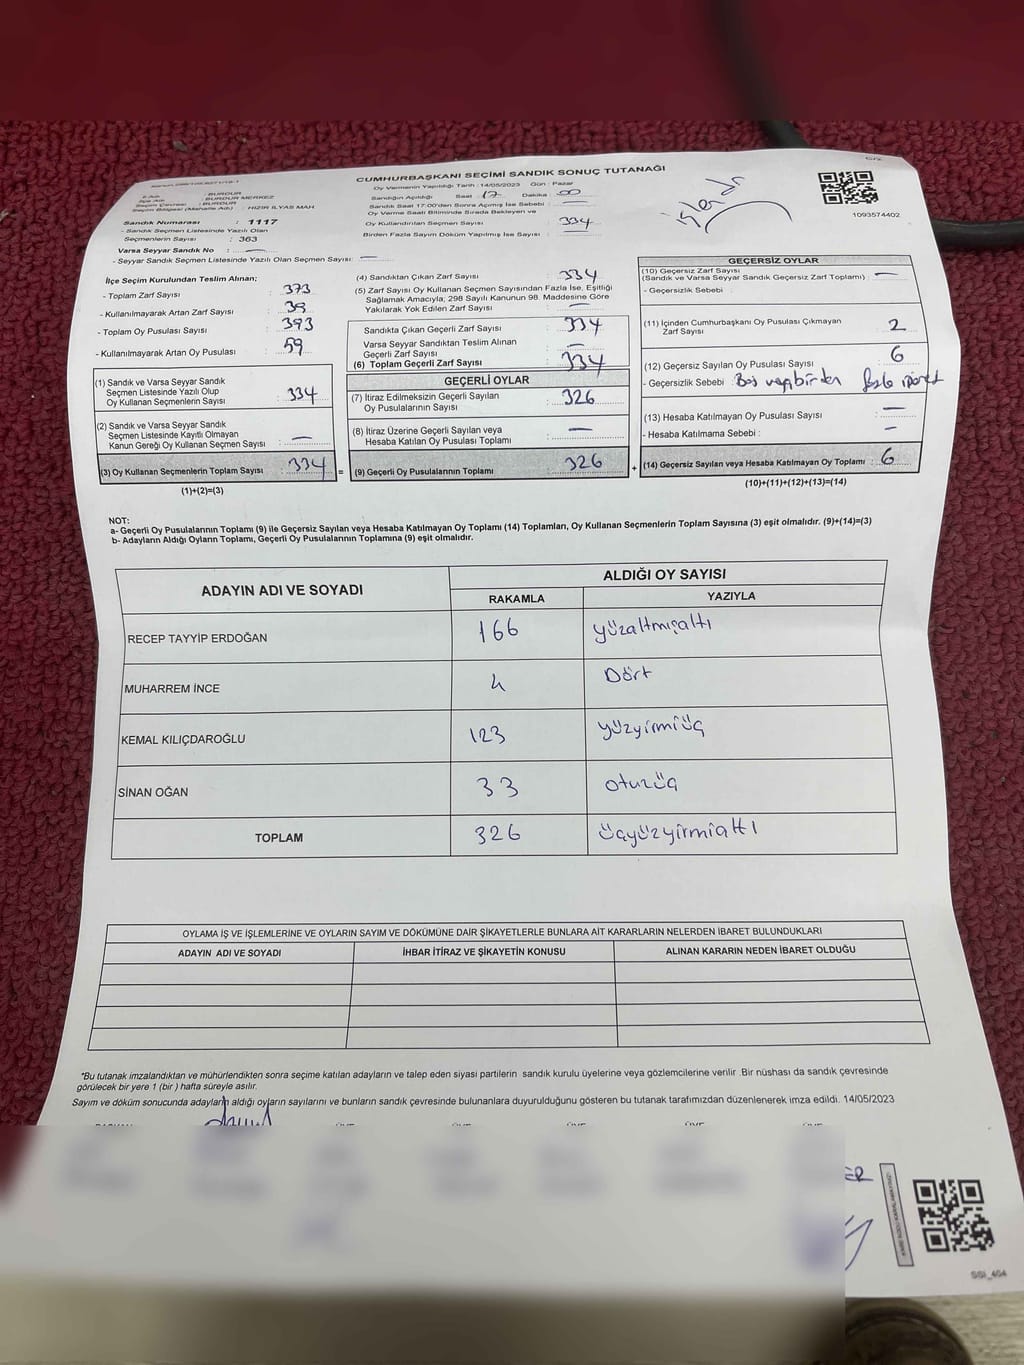 CUMHURBAŞKANI SEÇİMİ SANDIK SONUÇ TUTANAĞI
Oy Vermenin Yapıldığı Tarih : 14/05/2023 Gün : Pazar
Sandığın Açıldığı Saat 17 Dakika : 00
Sandık Saat 17:00'den Sonra Açılmış İse Sebebi : —
Oy Verme Saati Bitiminde Sırada Bekleyen ve
Oy Kullandırılan Seçmen Sayısı : 334
Birden Fazla Sayım Döküm Yapılmış İse Sayısı : —
işlendi
1093574402
İl Adı : BURDUR
İlçe Adı : BURDUR MERKEZ
Seçim Çevresi : BURDUR
Seçim Bölgesi (Mahalle Adı) : HIZIR İLYAS MAH
Sandık Numarası : 1117
- Sandık Seçmen Listesinde Yazılı Olan
Seçmenlerin Sayısı : 363
Varsa Seyyar Sandık No : —
- Seyyar Sandık Seçmen Listesinde Yazılı Olan Seçmen Sayısı: —
İlçe Seçim Kurulundan Teslim Alınan;
- Toplam Zarf Sayısı : 373
- Kullanılmayarak Artan Zarf Sayısı : 39
- Toplam Oy Pusulası Sayısı : 393
- Kullanılmayarak Artan Oy Pusulası : 59
(1) Sandık ve Varsa Seyyar Sandık
Seçmen Listesinde Yazılı Olup
Oy Kullanan Seçmenlerin Sayısı : 334
(2) Sandık ve Varsa Seyyar Sandık
Seçmen Listesinde Kayıtlı Olmayan
Kanun Gereği Oy Kullanan Seçmen Sayısı : —
(3) Oy Kullanan Seçmenlerin Toplam Sayısı : 334
(1)+(2)=(3)
(4) Sandıktan Çıkan Zarf Sayısı : 334
(5) Zarf Sayısı Oy Kullanan Seçmen Sayısından Fazla İse, Eşitliği
Sağlamak Amacıyla; 298 Sayılı Kanunun 98. Maddesine Göre
Yakılarak Yok Edilen Zarf Sayısı : —
Sandıkta Çıkan Geçerli Zarf Sayısı : 334
Varsa Seyyar Sandıktan Teslim Alınan
Geçerli Zarf Sayısı : —
(6) Toplam Geçerli Zarf Sayısı : 334
GEÇERLİ OYLAR
(7) İtiraz Edilmeksizin Geçerli Sayılan
Oy Pusulalarının Sayısı : 326
(8) İtiraz Üzerine Geçerli Sayılan veya
Hesaba Katılan Oy Pusulası Toplamı : —
= (9) Geçerli Oy Pusulalarının Toplamı : 326
GEÇERSİZ OYLAR
(10) Geçersiz Zarf Sayısı
(Sandık ve Varsa Seyyar Sandık Geçersiz Zarf Toplamı) : —
- Geçersizlik Sebebi :
(11) İçinden Cumhurbaşkanı Oy Pusulası Çıkmayan
Zarf Sayısı : 2
(12) Geçersiz Sayılan Oy Pusulası Sayısı : 6
- Geçersizlik Sebebi : Boş veya birden fazla işaret
(13) Hesaba Katılmayan Oy Pusulası Sayısı : —
- Hesaba Katılmama Sebebi : —
+ (14) Geçersiz Sayılan veya Hesaba Katılmayan Oy Toplamı : 6
(10)+(11)+(12)+(13)=(14)
NOT:
a- Geçerli Oy Pusulalarının Toplamı (9) ile Geçersiz Sayılan veya Hesaba Katılmayan Oy Toplamı (14) Toplamları, Oy Kullanan Seçmenlerin Toplam Sayısına (3) eşit olmalıdır. (9)+(14)=(3)
b- Adayların Aldığı Oyların Toplamı, Geçerli Oy Pusulalarının Toplamına (9) eşit olmalıdır.
ADAYIN ADI VE SOYADI ALDIĞI OY SAYISI
RAKAMLA YAZIYLA
RECEP TAYYİP ERDOĞAN 166 yüzaltmışaltı
MUHARREM İNCE 4 Dört
KEMAL KILIÇDAROĞLU 123 yüzyirmiüç
SİNAN OĞAN 33 otuzüç
TOPLAM 326 üçyüzyirmialtı
OYLAMA İŞ VE İŞLEMLERİNE VE OYLARIN SAYIM VE DÖKÜMÜNE DAİR ŞİKAYETLERLE BUNLARA AİT KARARLARIN NELERDEN İBARET BULUNDUKLARI
ADAYIN ADI VE SOYADI İHBAR İTİRAZ VE ŞİKAYETİN KONUSU ALINAN KARARIN NEDEN İBARET OLDUĞU
*Bu tutanak imzalandıktan ve mühürlendikten sonra seçime katılan adayların ve talep eden siyasi partilerin sandık kurulu üyelerine veya gözlemcilerine verilir .Bir nüshası da sandık çevresinde
görülecek bir yere 1 (bir ) hafta süreyle asılır.
Sayım ve döküm sonucunda adayların aldığı oyların sayılarını ve bunların sandık çevresinde bulunanlara duyurulduğunu gösteren bu tutanak tarafımızdan düzenlenerek imza edildi. 14/05/2023